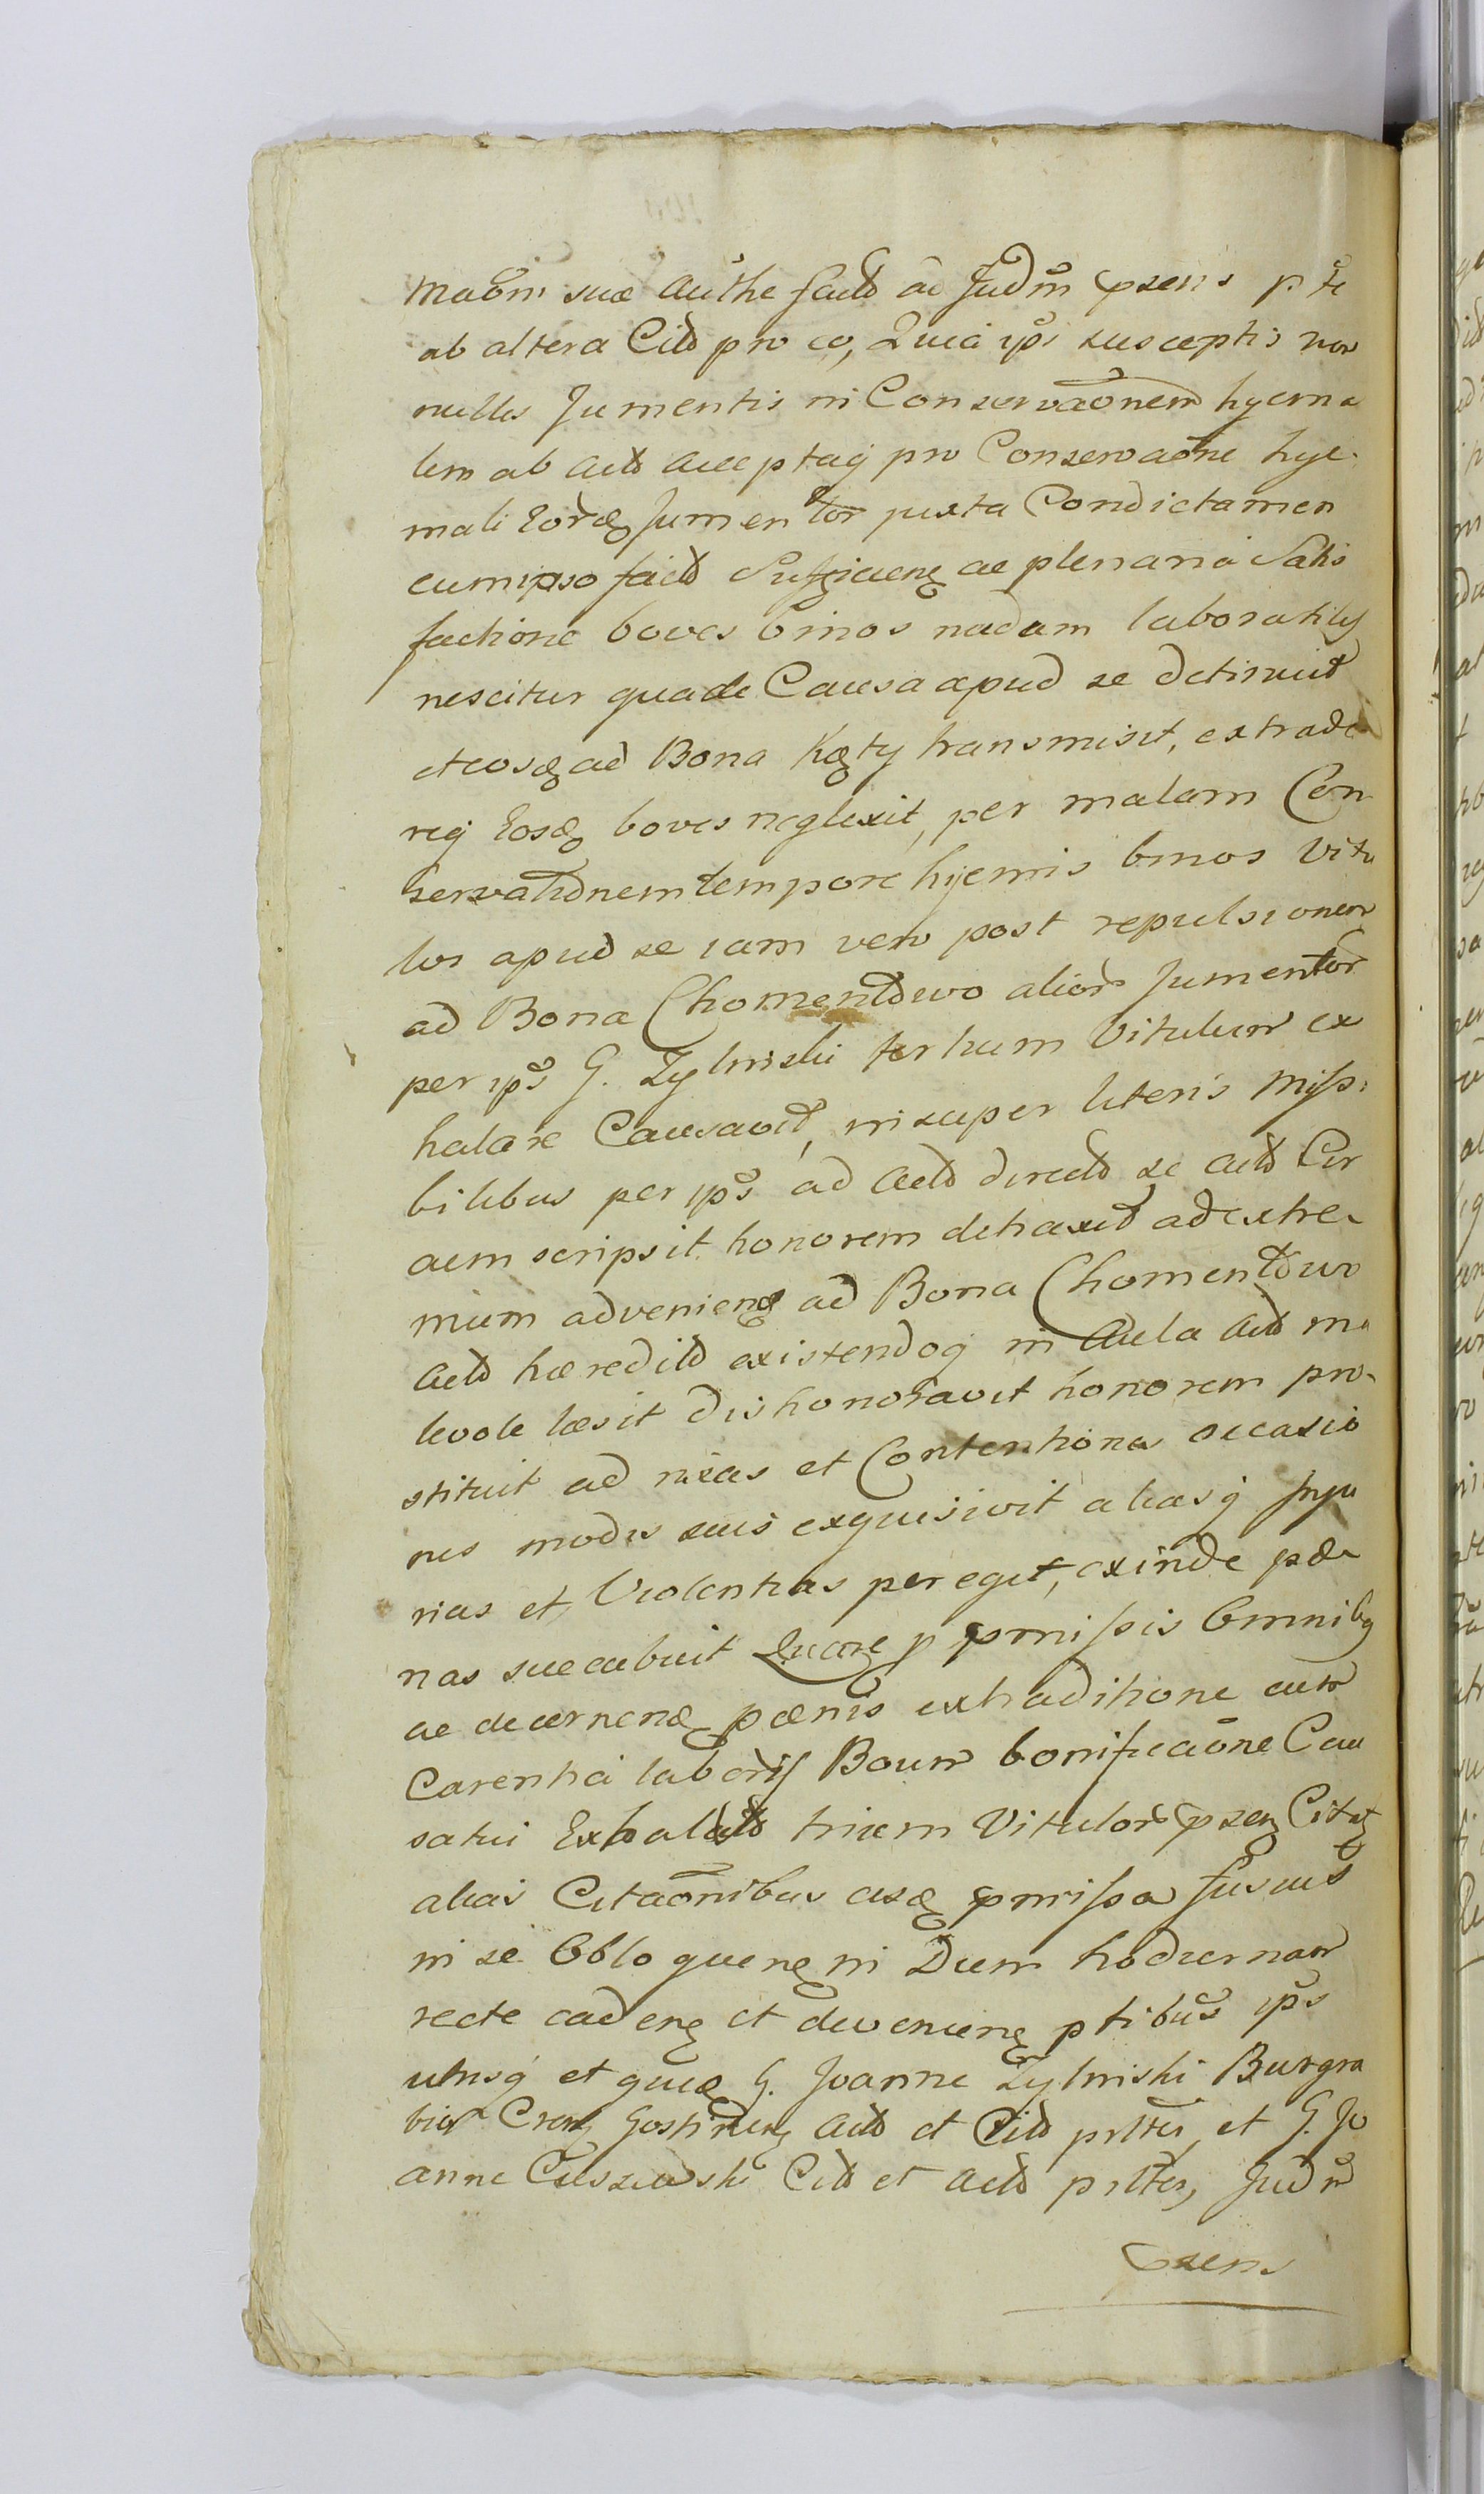 suæ Authe factâ ad Judm præsens
ab altera Citâ pro eo, Quia ips susceptis non
nullis Jumentis in Conservaonem hyema
lem ab actâ acceptaq pro Conservaone hye-
mali Jumentor juxta Condictamen
cum ipso factâ ac plenaria Satis
factione boves binos laboratil
nescitur qua de Causa apud se detinuit
ad Bona Kęty transmisit, extrade
req boves neglexit, per malam Con
servationem tempore hyemis binos Vitu
los apud se iam vero post repulsionem
ad Bona Chomentowo alior Jumentor
per ips G. Zyliński tertium Vitulum ex
halare Causavit, insuper literis Missi
libus per ips ad Actâ directâ se actâ
scripsit honorem detraxit ad extre-
mum adveniens ad Bona Chomentowo
Actâ hæreditâ existendoq in Aula Actâ ma
levole læsit dishonoravit honorem pro-
stituit ad rixas et Contentiones occasio
nes modis suis exquisivit aliasq Inju
rias et Violentias peregit, exinde pæ-
nas succubuit Quare p præmissis Omnib
ac decernen pænis extraditione
Carentia laboris Boum bonificaone Cau
sativi Exhalatâ trium Vitulor præsen Citat
alias Citaonibus præmissa fusius
in se Obloquen in Diem hodiernam
recte caden et devenien ptibus ips
utrisq et G. Joanne Zyliński Burgra
bio Cren Gostinen Actâ et Citâ et G. Jo
anne Ciszewski Citâ et Actâ Judm
præsens